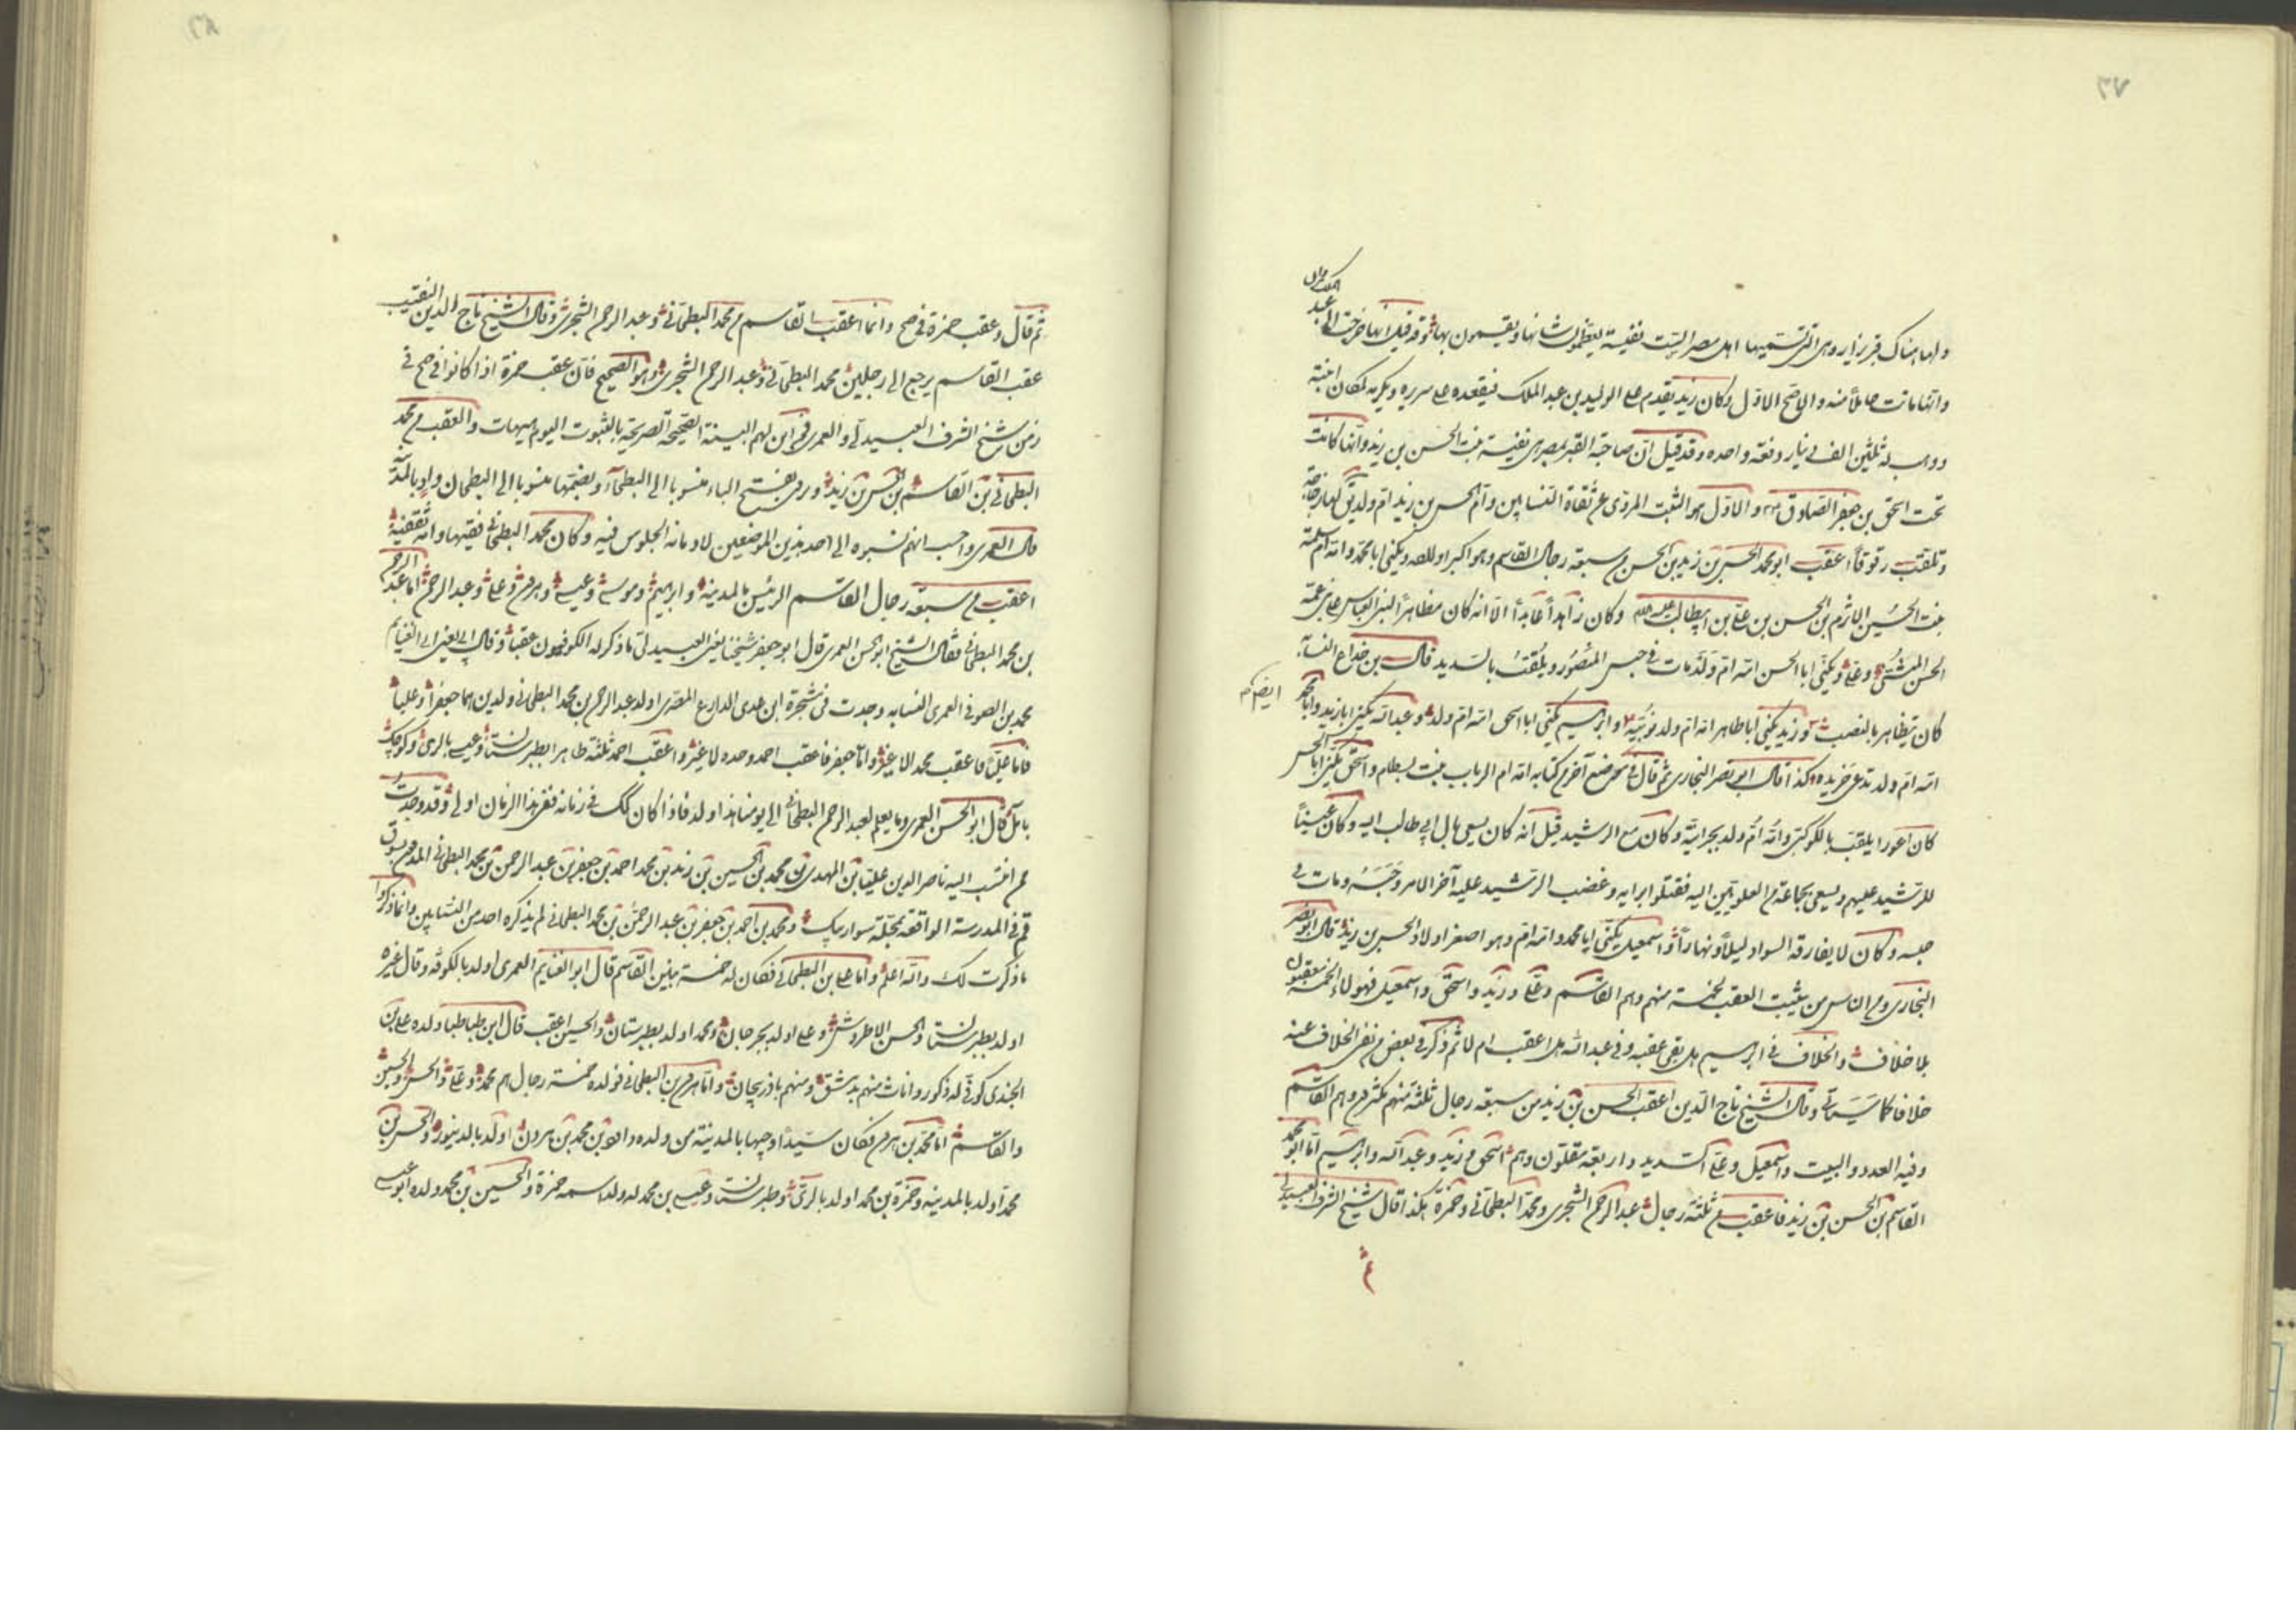 ٣٧
ولها هناك قبر يزار وهى التى تسميها اهل مصر الست نفيسة يعظمون شانها ويقسمون بها وقد قيل انها خرجت الى عبد
الملك مروان
وانها ماتت حاملاً منه والاصح الاول وكان زيد يقدم على الوليد بن عبد الملك فيقعده على سريره ويكرمه لمكان ابنته
ووهب له ثلثين الف دينار دفعة واحده وقد قيل ان صاحبة القبر بمصر هى نفيسة بنت الحسن بن زيد وانها كانت
تحت اسحق بن جعفر الصادق والاول هو الثبت المروى عن ثقاة النسابين وام الحسن بن زيد ام ولد يق لها زجاجة
وتلقب رقوقاً اعقب ابو محمد الحسن بن زيد بن الحسن من سبعة رجال القاسم وهو اكبر اولاده ويكنى ابا محمد وامه ام سلمة
بنت الحسين الاثرم بن الحسن بن على بن ابيطالب وكان زاهداً عابداً الا انه كان مظاهراً لبنى العباس على بنى عمه
الحسن المثنى وعلى ويكنى ابا الحسن امه ام ولد مات فى حبس المنصور ويلقب بالسديد قال بن خداع النسابه
كان يتظاهر بالنصب وزيد يكنى ابا طاهر امه ام ولد نوبية وابراهيم يكنى ابا اسحق امه ام ولد وعبدالله يكنى ابا زيد وابا محمد
ايضاً
امه ام ولد تدعى خريده كذا قال ابو نصر البخارى ثم قال فى موضع آخر من كتابه امه ام الرباب بنت بسطام واسحق يكنى ابا الحسن
كان اعور ايلقب بالكوكبى وامه ام ولد بحرانية وكان مع الرشيد قيل انه كان يسعى بال ابى طالب اليه وكان عيناً
للرشيد عليهم ويسعى بجماعة من العلويين اليه فقتلوا برايه وغضب الرشيد عليه آخر الامر وحبسه ومات فى
حبسه وكان لا يفارقه السواد ليلاً ونهاراً واسمعيل يكنى ابا محمد وامه ام وهو اصغر اولاد الحسن بن زيد قال ابو نصر
البخارى ومن الناس من يثبت العقب لخمسة منهم وهم القاسم وعلى وزيد واسحق واسمعيل فهولاء الخمسة معقبون
بلا خلاف والخلاف فى ابراهيم هل بقى عقبه وفى عبد الله هل اعقب ام لا ثم ذكر فى بعض من نفى الخلاف عنه
خلافا كما سياتى وقال الشيخ تاج الدين اعقب الحسن بن زيد من سبعة رجال ثلثة منهم مكثرون وهم القاسم
وفيه العدد والبيت واسمعيل وعلى السديد واربعة مقلون وهم اسحق وزيد وعبد الله وابراهيم اما ابو محمد
القاسم بن الحسن بن زيد فاعقب من ثلثة رجال عبد الرحمن الشجرى ومحمد البطحانى وحمزة هكذا قال شيخ الشرف العبيدلى
٣٨
ثم قال وعقب حمزة فى صح وانما اعقب القاسم من محمد البطحانى وعبد الرحمن الشجرى وقال الشيخ تاج الدين النقيب
عقب القاسم يرجع الى رجلين محمد البطحانى وعبد الرحمن الشجرى وهو الصحيح فان عقب حمزة اذا كانوا فى صح فى
زمن شيخ الشرف العبيدلى والعمرى فمن اين لهم البينة الصحيحة الصريحة بالثبوت اليوم هيهات والعقب من محمد
البطحانى بن القاسم بن الحسن بن زيد وروى بفتح الباء منسوبا الى البطحآء وبضمها منسوبا الى البطحان واد بالمدينة
قال العمرى واحسب انهم نسبوه الى احد هذين الموضعين لادمانه الجلوس فيه وكان محمد البطحانى فقيها وامه ثقفية
اعقب من سبعة رجال القاسم الرئيس بالمدينة وابراهيم وموسى وعيسى وهرون وعلى وعبد الرحمن اما عبد الرحمن
بن محمد البطحانى فقال الشيخ ابو الحسن العمرى قال ابو جعفر شيخنا يعنى العبيدلى ما ذكر له الكوفيون عقبا وقال لى يعنى ابى الغنايم
محمد بن الصوفى العمرى النسابه وجدت فى مشجرة ابن عدى الدارع المصرى اولد عبد الرحمن بن محمد البطحانى ولدين هما جعفر وعلياً
فاما على فاعقب محمد لا غير واما جعفر فاعقب احمد وحده لا غير واعقب احمد ثلثة طاهر ابطبرستان وعيسى بالرى وكوچك
بامل قال ابو الحسن العمرى وما يعلم لعبد الرحمن البطحانى الى يومنا هذا ولد فاذا كان كك فى زمانه ففى هذا الزمان اولى وقد وجدت
من انتسب اليه ناصر الدين عليا بن المهدى بن محمد بن الحسين بن زيد بن محمد احمد بن جعفر بن عبد الرحمن بن محمد البطحانى المدفون بسوق
قم فى المدرسة الواقعة بمحلة سورانيك ومحمد بن احمد بن جعفر بن عبد الرحمن بن محمد البطحانى لم يذكره احد من النسابين وانما ذكروا
ما ذكرت لك والله اعلم واما على بن البطحانى فكان له خمسة بنين القاسم قال ابو الغنايم العمرى اولد بالكوفة وقال غيره
اولد بطبرستان والحسن الاطروش وعلى اولد بجرجان ومحمد اولد بطبرستان والحسين اعقب قال ابن طباطبا ولده على بن
الجندى كوفى له ذكور واناث منهم بدمشق ومنهم باذربيجان واما هرون بن البطحانى فولده خمسة رجال هم محمد وعلى والحسن والحسين
والقاسم اما محمد بن هرون فكان سيداً وجيها بالمدينة من ولده داود بن محمد بن هرون اولد بالدينور والحسن بن
محمد اولد بالمدينه وحمزة بن محمد اولد بالرى وطبرستان وعيسى بن محمد له ولد اسمه حمزة والحسين بن محمد ولده ابو عيسى